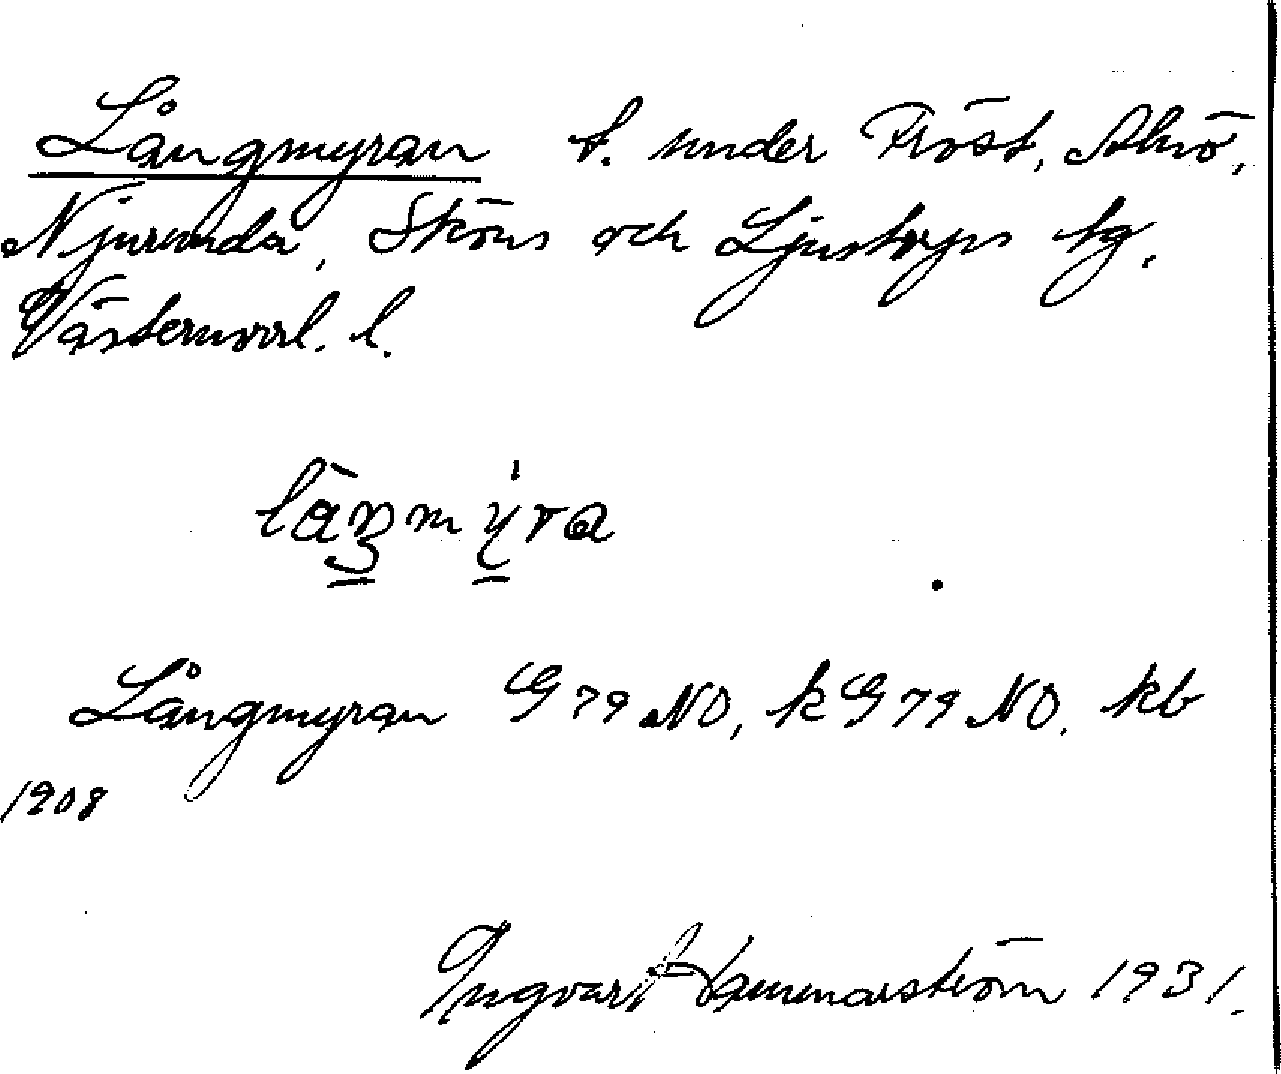 Långmyran t. under Fröst, Alnö,
Njurunda, Sköns och Ljustorps tg,
Västernorrl. l.
làŋmýra
Långmyran G 79 NO, k G 79 NO. kb
1908
Ingvart Hammarström 1931.